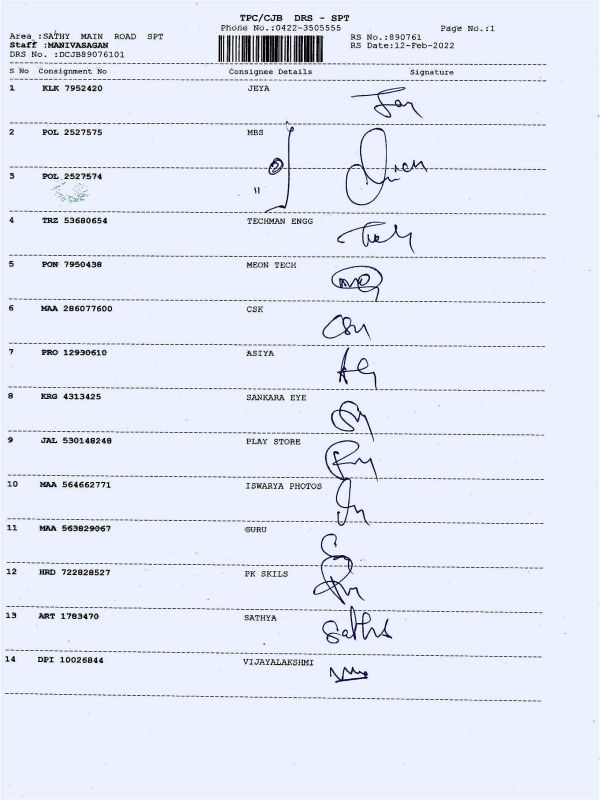 TPC/CJB DRS - SPT
Phone No.:0422-3505555 Page No.:1
Area :SATHY MAIN ROAD SPT RS No.:890761
Staff :MANIVASAGAN RS Date:12-Feb-2022
DRS No. :DCJB89076101
S No Consignment No Consignee Details Signature
1 KLK 7952420 JEYA
2 POL 2527575 MBS
3 POL 2527574 "
4 TRZ 53680654 TECHMAN ENGG
5 PON 7950438 MEON TECH
6 MAA 286077600 CSK
7 PRO 12930610 ASIYA
8 KRG 4313425 SANKARA EYE
9 JAL 530148248 PLAY STORE
10 MAA 564662771 ISWARYA PHOTOS
11 MAA 563829067 GURU
12 HRD 722828527 PK SKILS
13 ART 1783470 SATHYA
14 DPI 10026844 VIJAYALAKSHMI